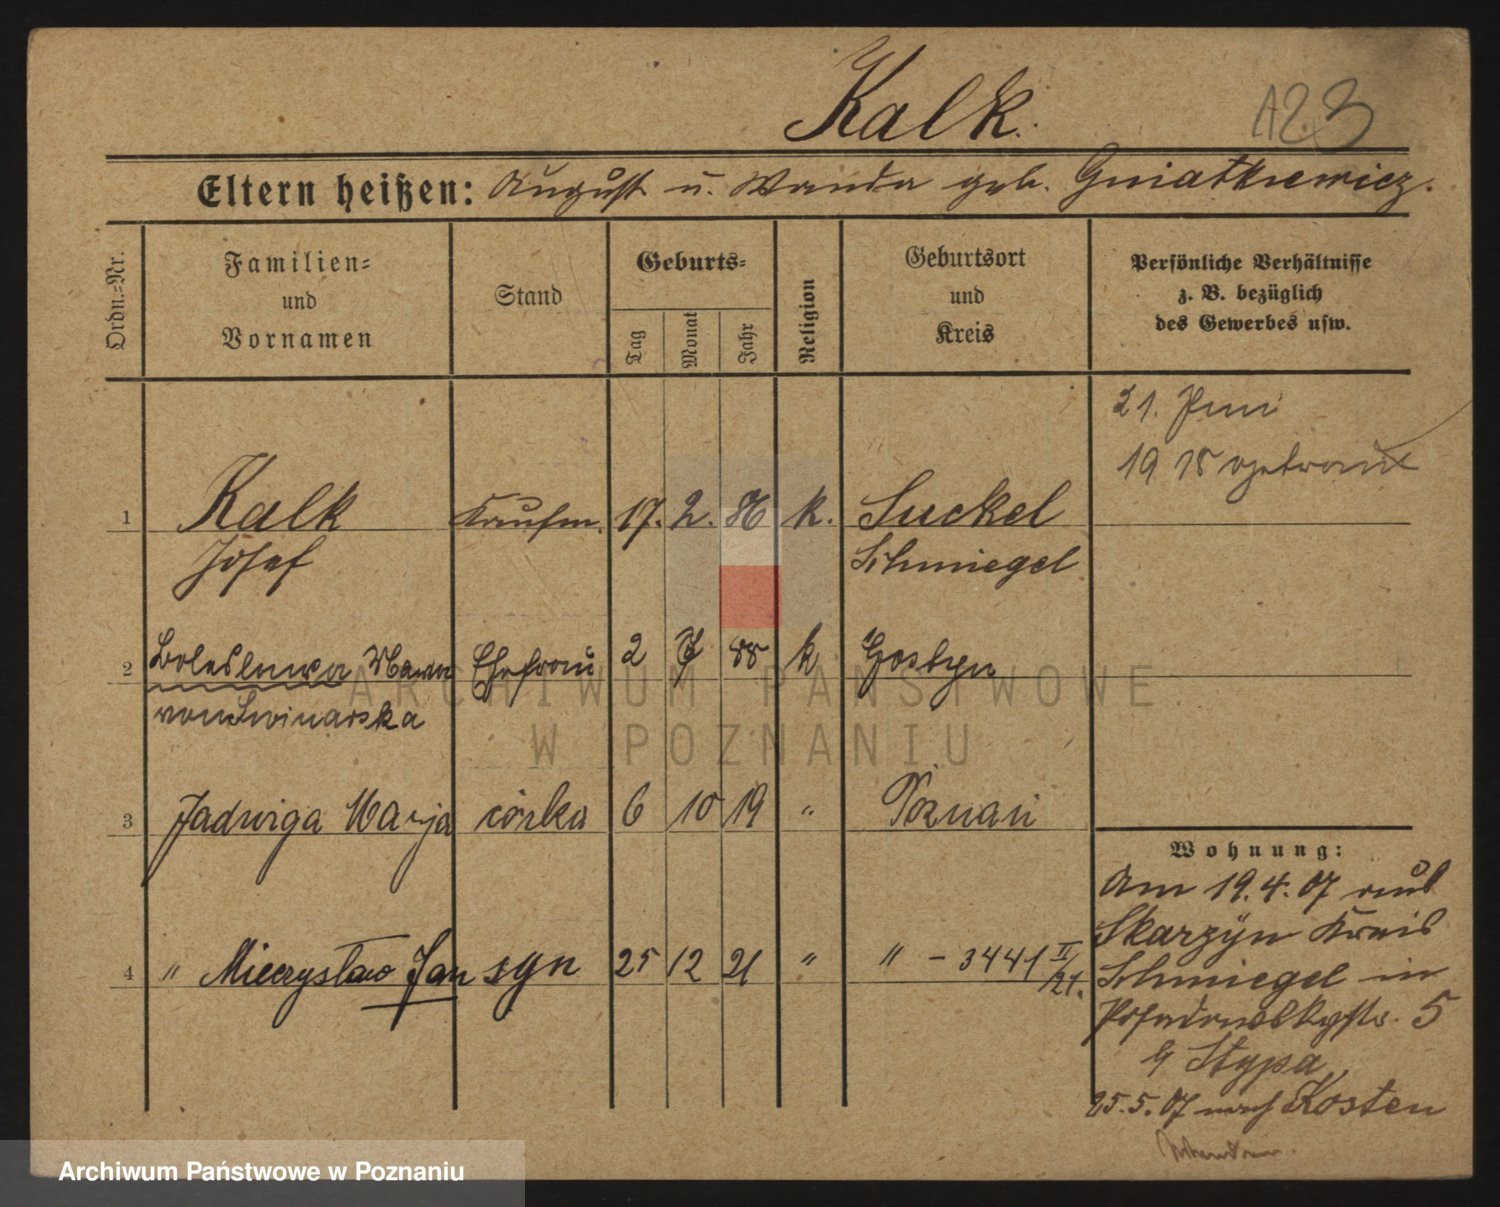 Kalk.
123
Eltern heißen: August u. Wanda geb. Gniatkiewicz.
Ordn.-Nr.
Familien-
und
Vornamen
Stand
Geburts-
Tag
Monat
Jahr
Religion
Geburtsort
und
Kreis
Persönliche Verhältnisse
z. B. bezüglich
des Gewerbes usw.
21. Juni
1918 getraut
1 Kalk Kaufm. 17. 2. 86 k. Suckel
Josef Schmiegel
2 Boleslawa Maria Ehefrau 2 7 88 k Gostyn
von Swinarska
3 Jadwiga Marja córka 6 10 19 " Poznań
4 " Mieczysław Jan syn 25 12 21 " " - 3441 II/21.
Wohnung:
Am 19.4.07 aus
Skarzyn Kreis
Schmiegel in
Posadowskystr. 5
b Stypa
25.5.07 nach Kosten
ARCHIWUM PAŃSTWOWE
W POZNANIU
Archiwum Państwowe w Poznaniu